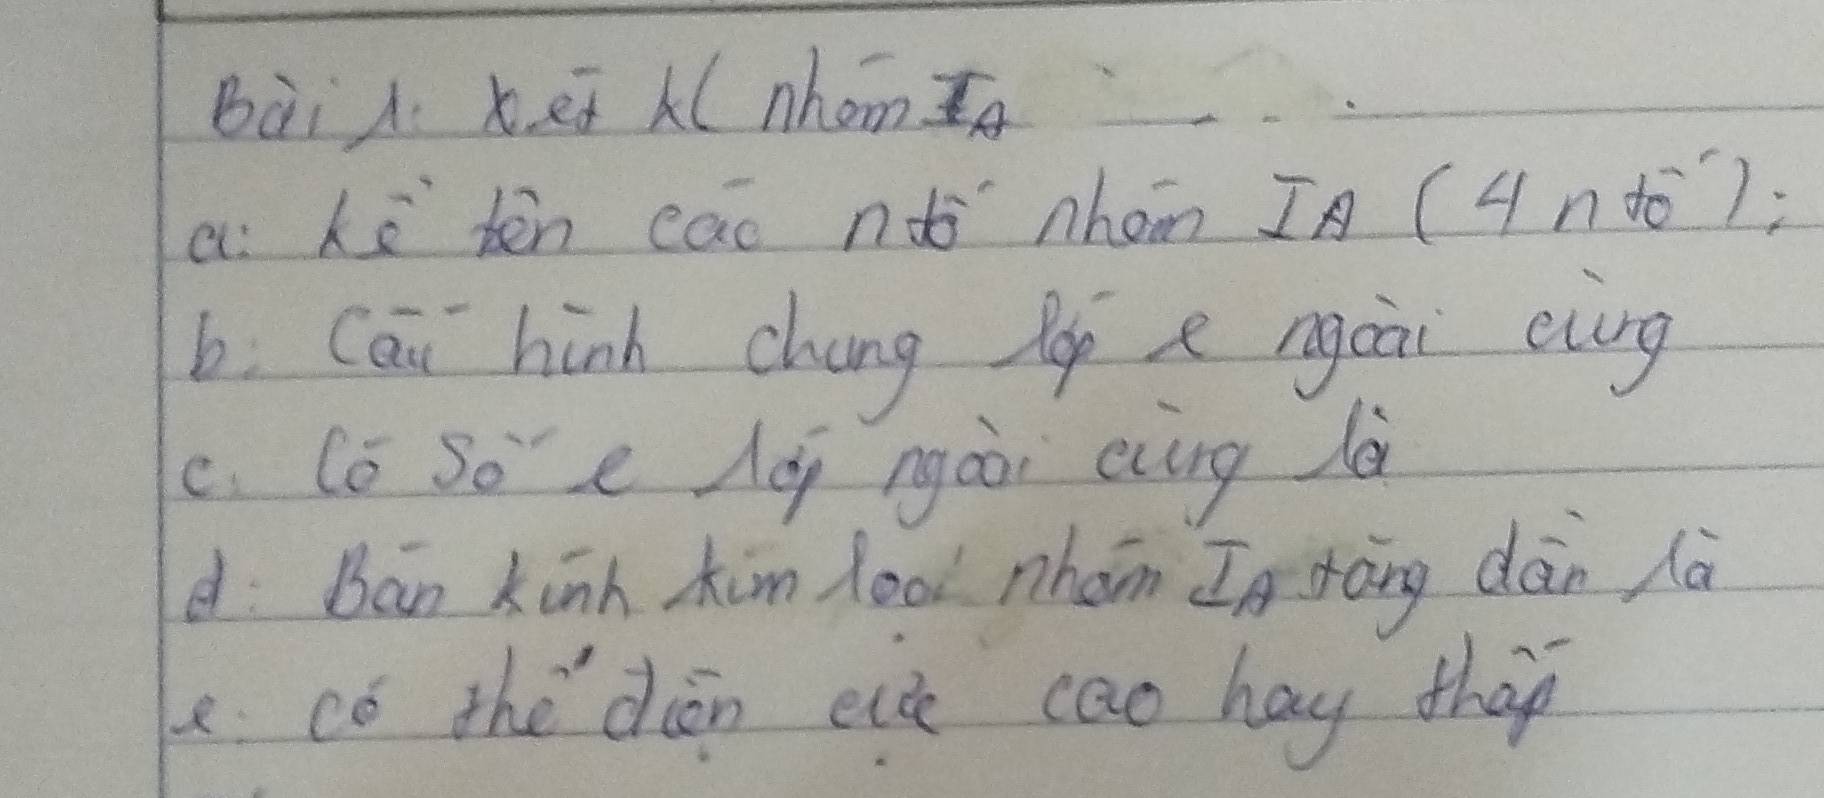 Bài 1: Xét KL nhóm IA
a: kể tên các ntố nhóm IA (4 ntố):
b: Cấu hình chung lớp e ngoài cùng
c. Có số e lớp ngoài cùng là
d: Bán kính kim loại nhóm IA tăng dần là
e: có thế điện cực cao hay thấp